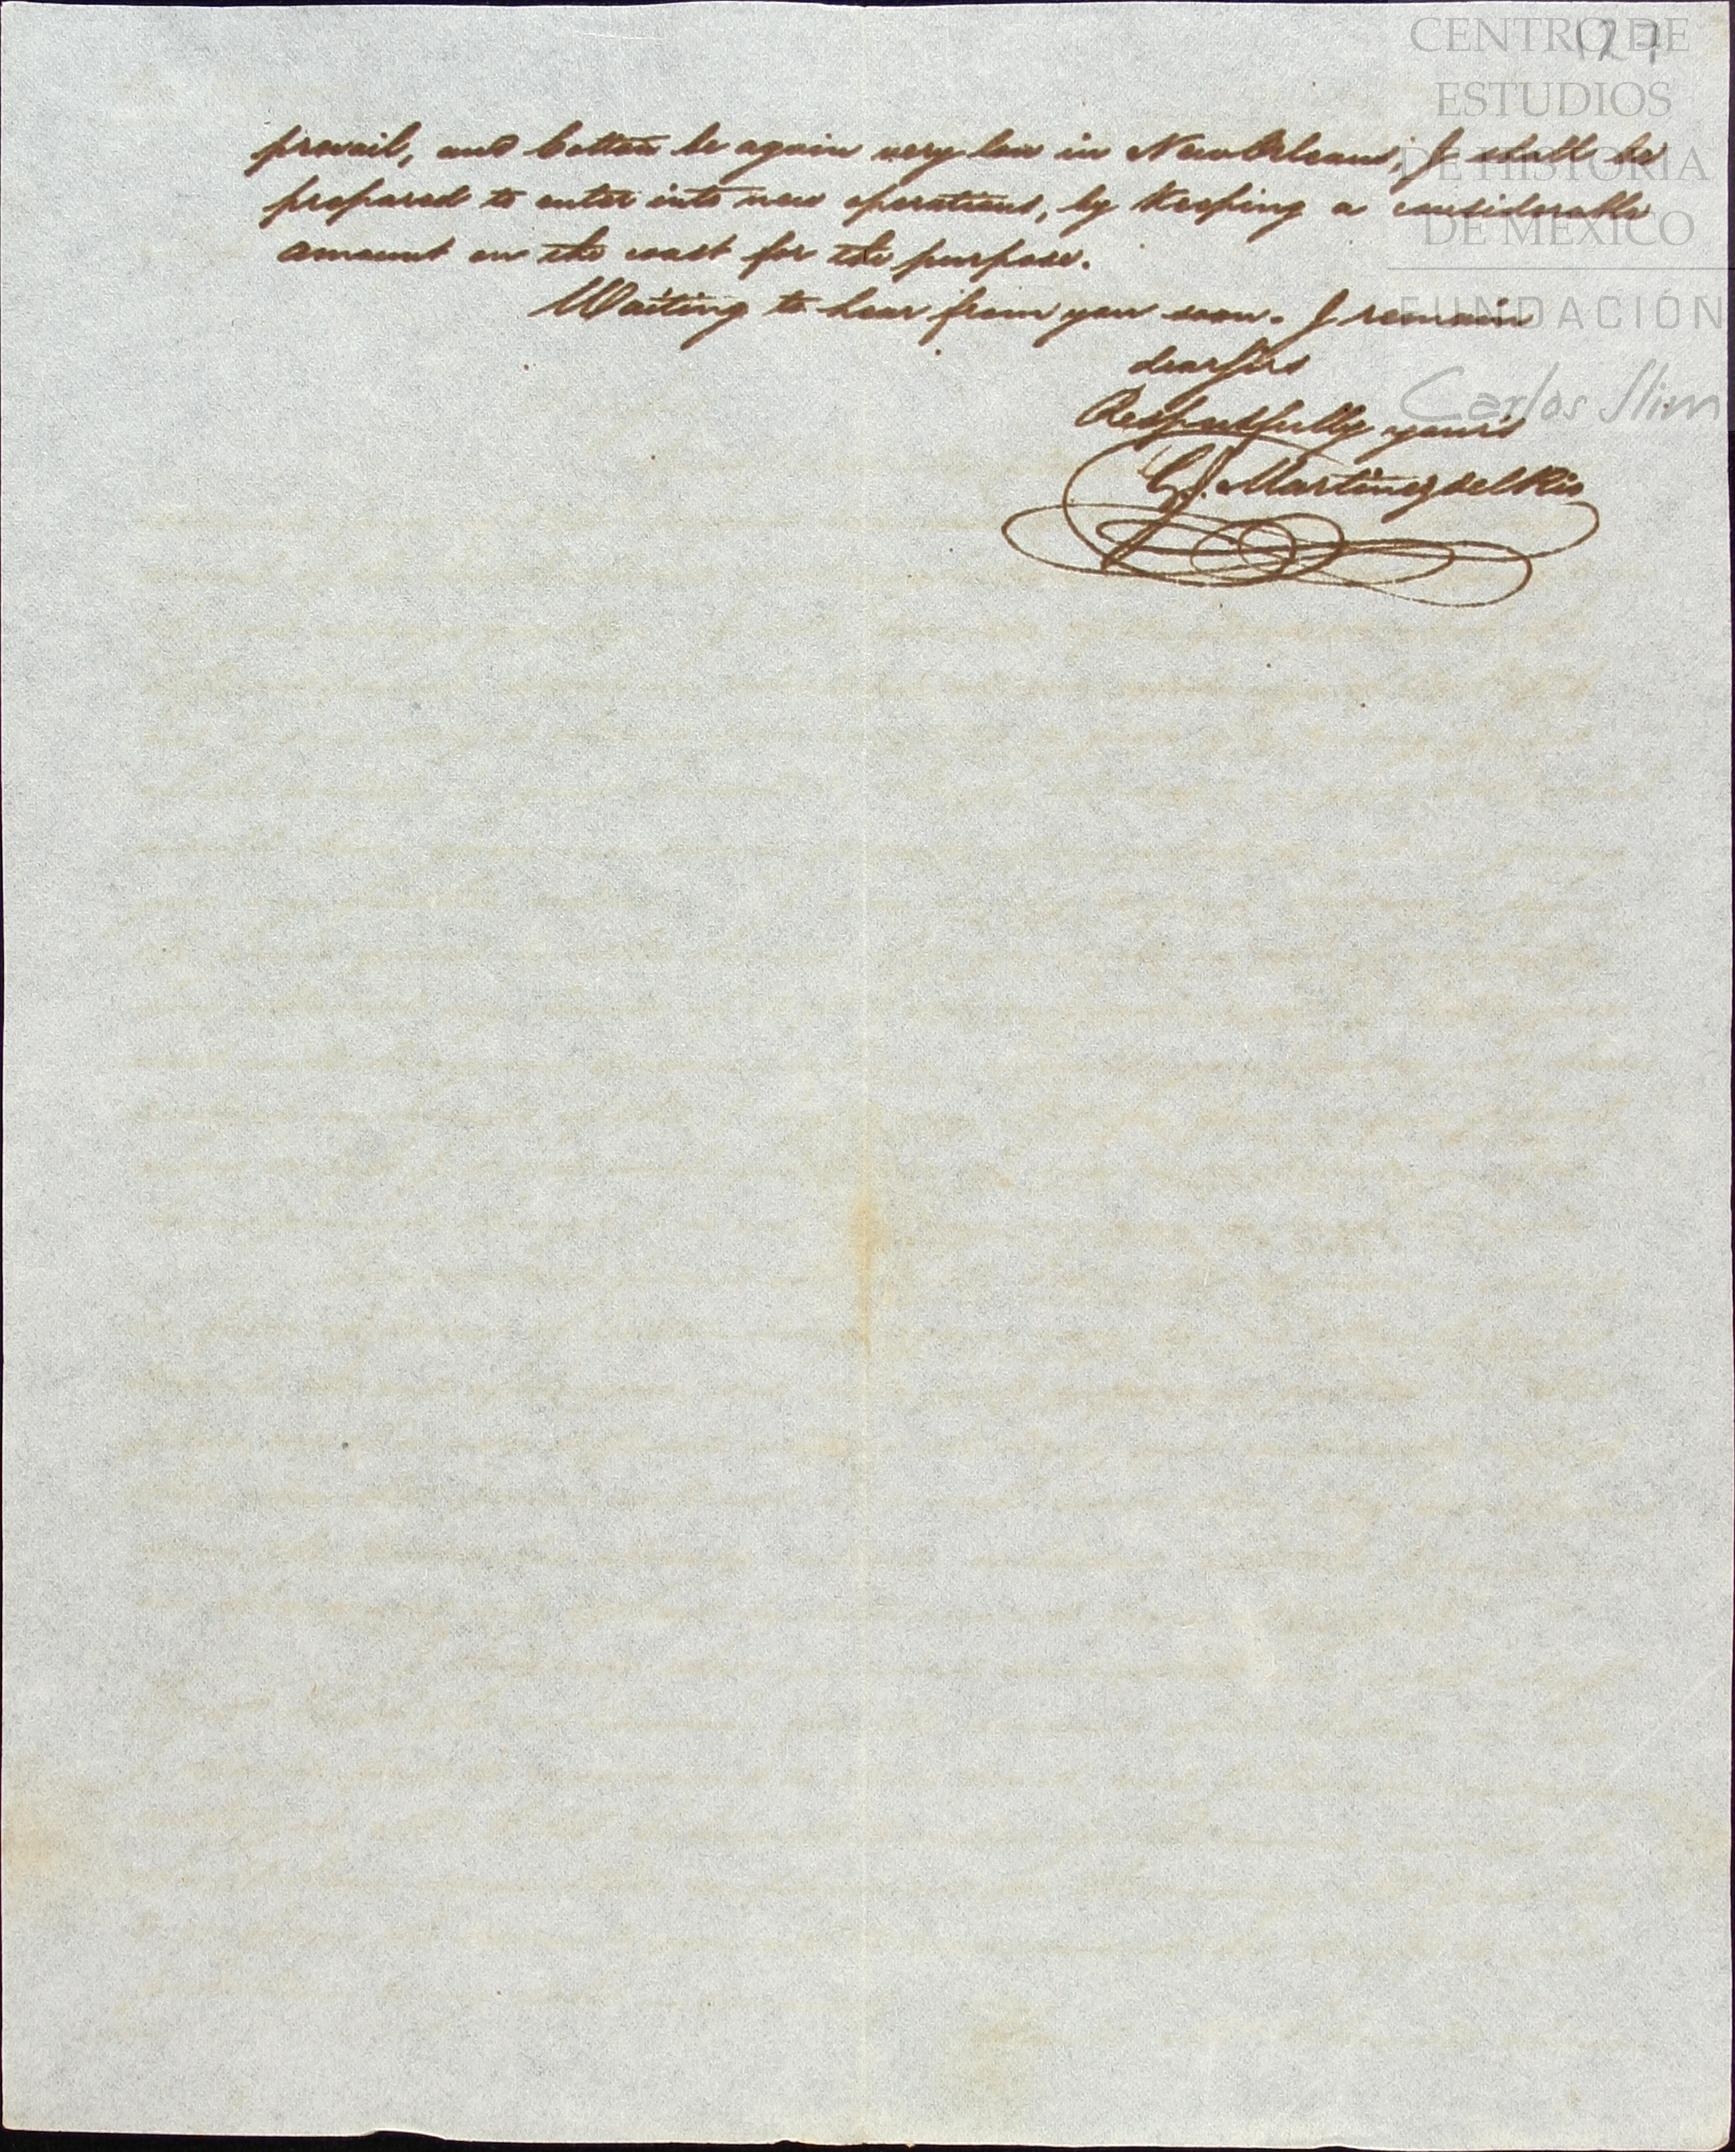 127
CENTRO DE
ESTUDIOS
DE HISTORIA
DE MÉXICO
FUNDACIÓN
Carlos Slim
prevail, and Cotton be again very low in New Orleans, I shall be
prepared to enter into new operations, by Keeping a considerable
amount on the coast for the purpose.
Waiting to hear from you soon. I remain
dear Sirs
Respectfully yours
G. Martinez del Rio